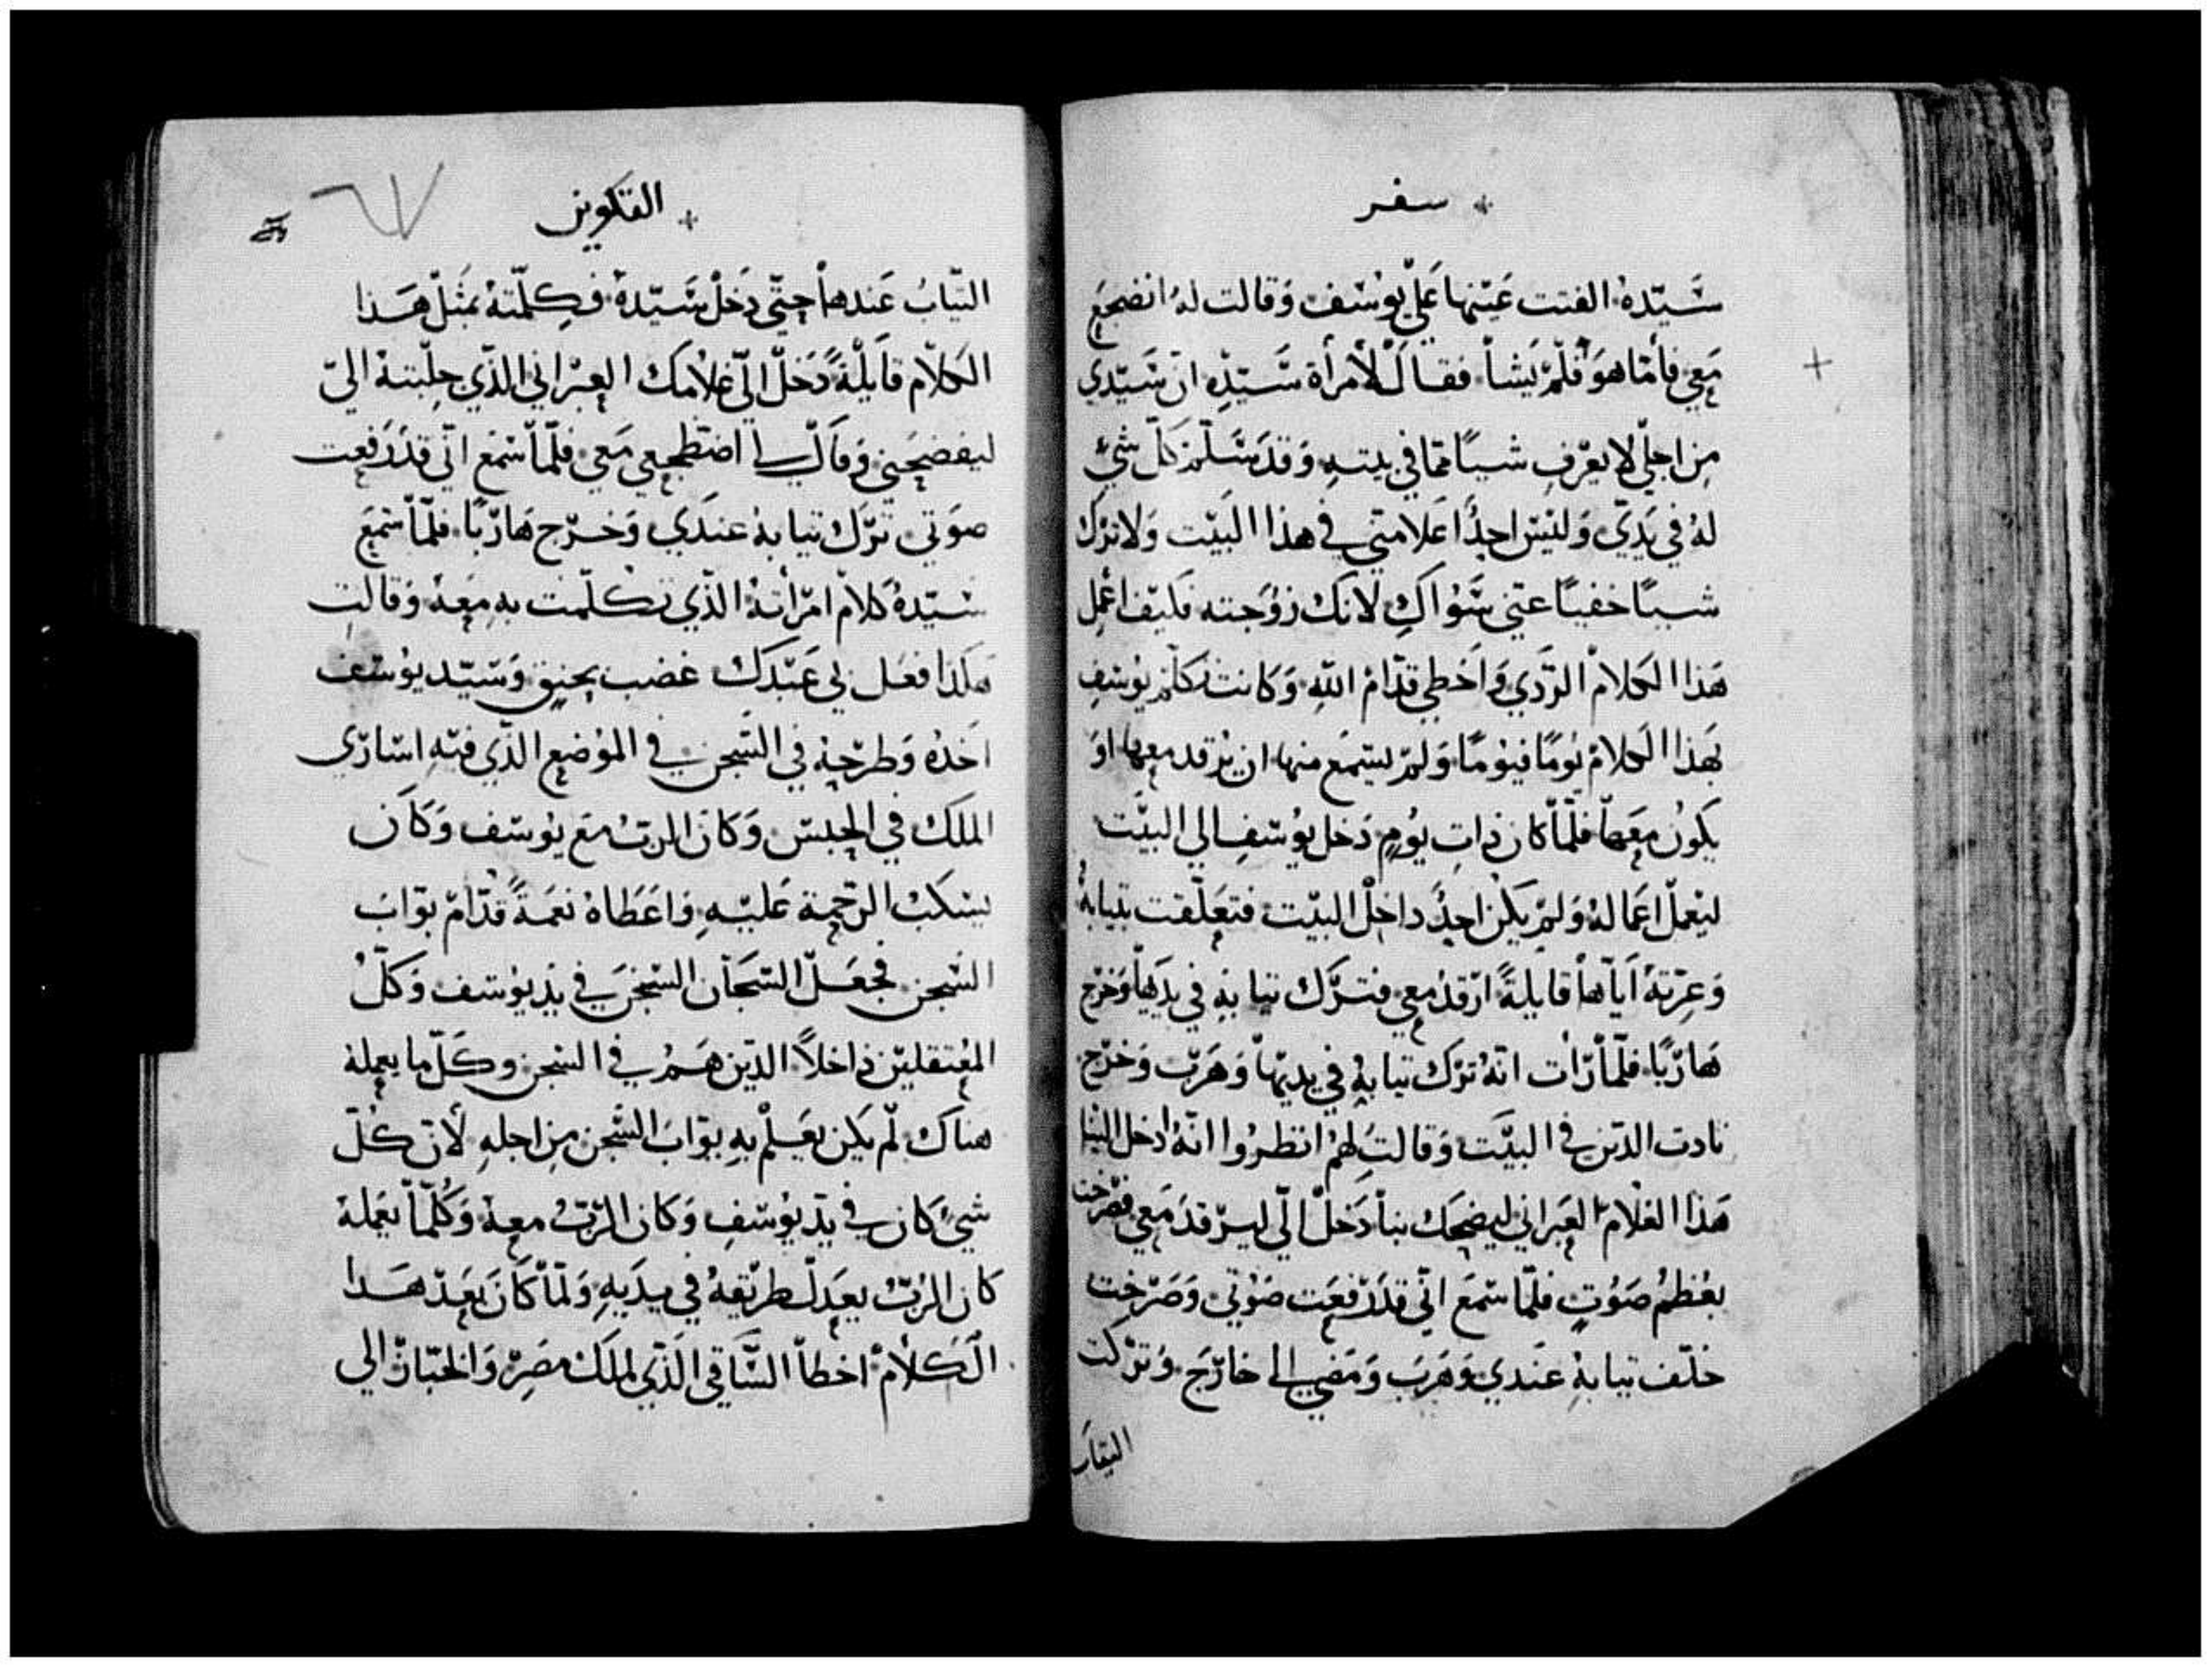 سفر
سَيّدهُ الفتت عَينها عَلي يوُسَف وَقالت لهُ انضجعَ
مَعي فأمّا هوَ فلمْ يَشأ فقال لأمرأة سَيّدِهِ انّ سَيّدي
مِن اجلي لا يعْرف شيئًا ممّا في بيتهِ وَقدَ سَلّمَ كلّ شيْ
لهُ في يَديّ وَليْس احدُ اعَلا منّي في هذا البَيت وَلا ترك
شيئًا خفيًا عنّي سَوُاكِ لانك زوُجَته فكيف اعْمِل
هَذا الكلامْ الرّدَي وَاخطي قدّامْ اللهِ وَكانت تكلّم يوُسف
بهَذا الكلامْ يوُمًا فيوُمًا وَلمْ يسَمع منها ان يرْقد معها اوَ
يكوُن مَعها فلمّا كان ذاتِ يوُمٍ دَخل يوُسَف الي البيَت
ليَعْمل اعَمالهُ وَلمْ يكن احدُ داخل البيْت فتعَلّقت بثيابهُ
وَعرّتهُ ايّاها قايلةً ارْقدْ معي فترَك ثيابهِ في يدَيها وَخرج
هَاربًا فلمّا رَأت انّهُ ترَك ثيابهُ في يديْها وَهَربْ وَخرَج
نادت الذين في البيَت وَقالت لهُمْ انظرُوا انّهُ ادخل الينا
هَذا الغلامْ العَبراني ليضحك بنا دَخل الّي ليرْقدَ مَعي فصرخت
بعُظمْ صَوُتٍ فلمّا سَمعَ انّي قدَ رَفعَت صَوُتي وَصَرخِت
خلّف ثيابهُ عَندي وَهَربَ وَمَضي الي خارَج وَترَكت
الثياب
التكوين
٦٧
الثيّابُ عَندها حتّي دَخل سَيّدهُ فكلّمتهُ بمثل هَذا
الكلامْ قايلةً دَخل الّي غلامَك العبْراني الذّي جلبتهُ اليّ
ليفضحَني وَقال لي اضطجعي مَعي فلمّا سَمع انّي قدَ رَفعت
صوَتي ترّك ثيابهُ عندَي وَخرّج هَاربًا فلمّا سَمعَ
سَيّدهُ كلامْ امرَأتهُ الذّي تكلّمت بهِ معَهُ وَقالت
هكذا فعَل بي عَبْدَك غضب بحنقٍ وَسَيّد يوُسَف
اخذهُ وَطرَحهُ في السّجن في الموُضع الذّي فيهِ اسَارَي
الملك في الحبسْ وَكان الربّ معَ يوُسَف وَكانَ
يسَكبْ الرّحمة عَليْهِ وَاعَطاهُ نعَمةً قدّامْ بوّابَ
السّجن فجعَل السّجَان السّجنَ في يد يوُسَف وَكلّ
المعتقليْن داخلاً الذّين هَمُ في السّجن وكلّ ما يعملهُ
هناك لمْ يكن يعَلمْ بهِ بوّابَ السّجن مِن اجلهِ لأنّ كلّ
شيْ كان في يَد يوُسَفِ وَكان الرّبّ معهُ وَكُلّما يَعَملهُ
كان الرّبّ يعَدِل طرَيقهُ في يدَيهِ وَلمّا كانَ بَعَدْ هَدا
الكلامْ اخطأ السَّاقي الَّذي لملك مصَرْ وَالخبّاز الي